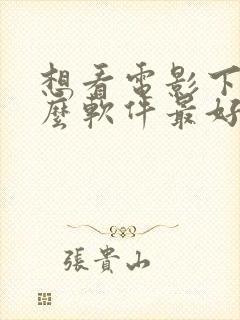 想看電影下
麼軟件最好
張貴山